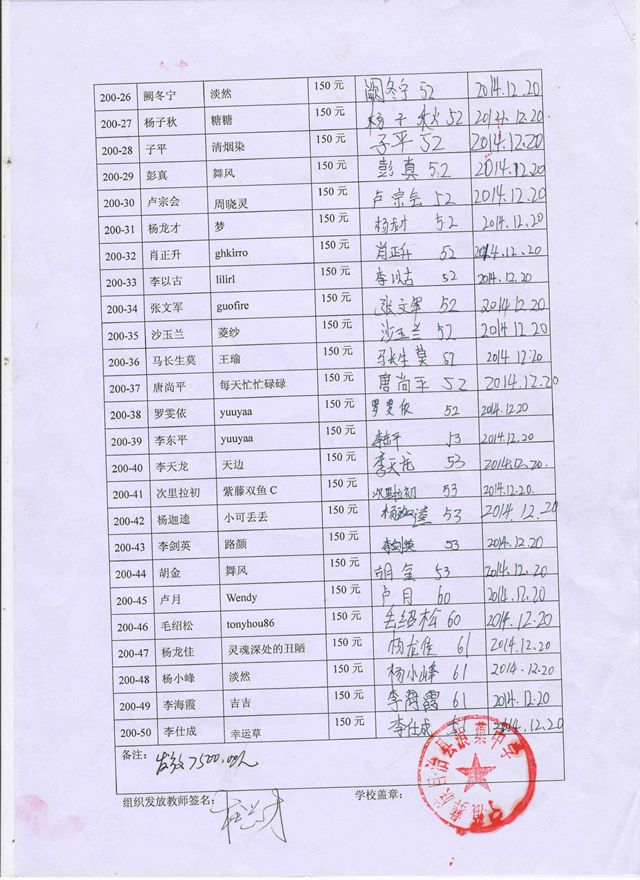 200-26 阙冬宁 淡然 150 元 阙冬宁 52 2014.12.20
200-27 杨子秋 糖糖 150 元 杨子秋 52 2014.12.20
200-28 子平 清烟染 150 元 子平 52 2014.12.20
200-29 彭真 舞风 150 元 彭真 52 2014.12.20
200-30 卢宗会 周晓灵 150 元 卢宗会 52 2014.12.20
200-31 杨龙才 梦 150 元 杨龙才 52 2014.12.20
200-32 肖正升 ghkirro 150 元 肖正升 52 2014.12.20
200-33 李以古 lilirl 150 元 李以古 52 2014.12.20
200-34 张文军 guofire 150 元 张文军 52 2014.12.20
200-35 沙玉兰 菱纱 150 元 沙玉兰 52 2014.12.20
200-36 马长生莫 王瑜 150 元 马长生莫 52 2014.12.20
200-37 唐尚平 每天忙忙碌碌 150 元 唐尚平 52 2014.12.20
200-38 罗雯依 yuuyaa 150 元 罗雯依 52 2014.12.20
200-39 李东平 yuuyaa 150 元 李东平 53 2014.12.20
200-40 李天龙 天边 150 元 李天龙 53 2014.12.20.
200-41 次里拉初 紫藤双鱼 C 150 元 次里拉初 53 2014.12.20.
200-42 杨迦逵 小可丢丢 150 元 杨迦逵 53 2014.12.20
200-43 李剑英 路颜 150 元 李剑英 53 2014.12.20
200-44 胡金 舞风 150 元 胡金 53 2014.12.20
200-45 卢月 Wendy 150 元 卢月 60 2014.12.20
200-46 毛绍松 tonyhou86 150 元 毛绍松 60 2014.12.20
200-47 杨龙佳 灵魂深处的丑陋 150 元 杨龙佳 61 2014.12.20
200-48 杨小峰 淡然 150 元 杨小峰 61 2014.12.20
200-49 李海霞 吉吉 150 元 李海霞 61 2014.12.20
200-50 李仕成 幸运草 150 元 李仕成 2014.12.20
备注: 发放7500.00元
组织发放教师签名: 学校盖章:
族自治县浪蕖中学